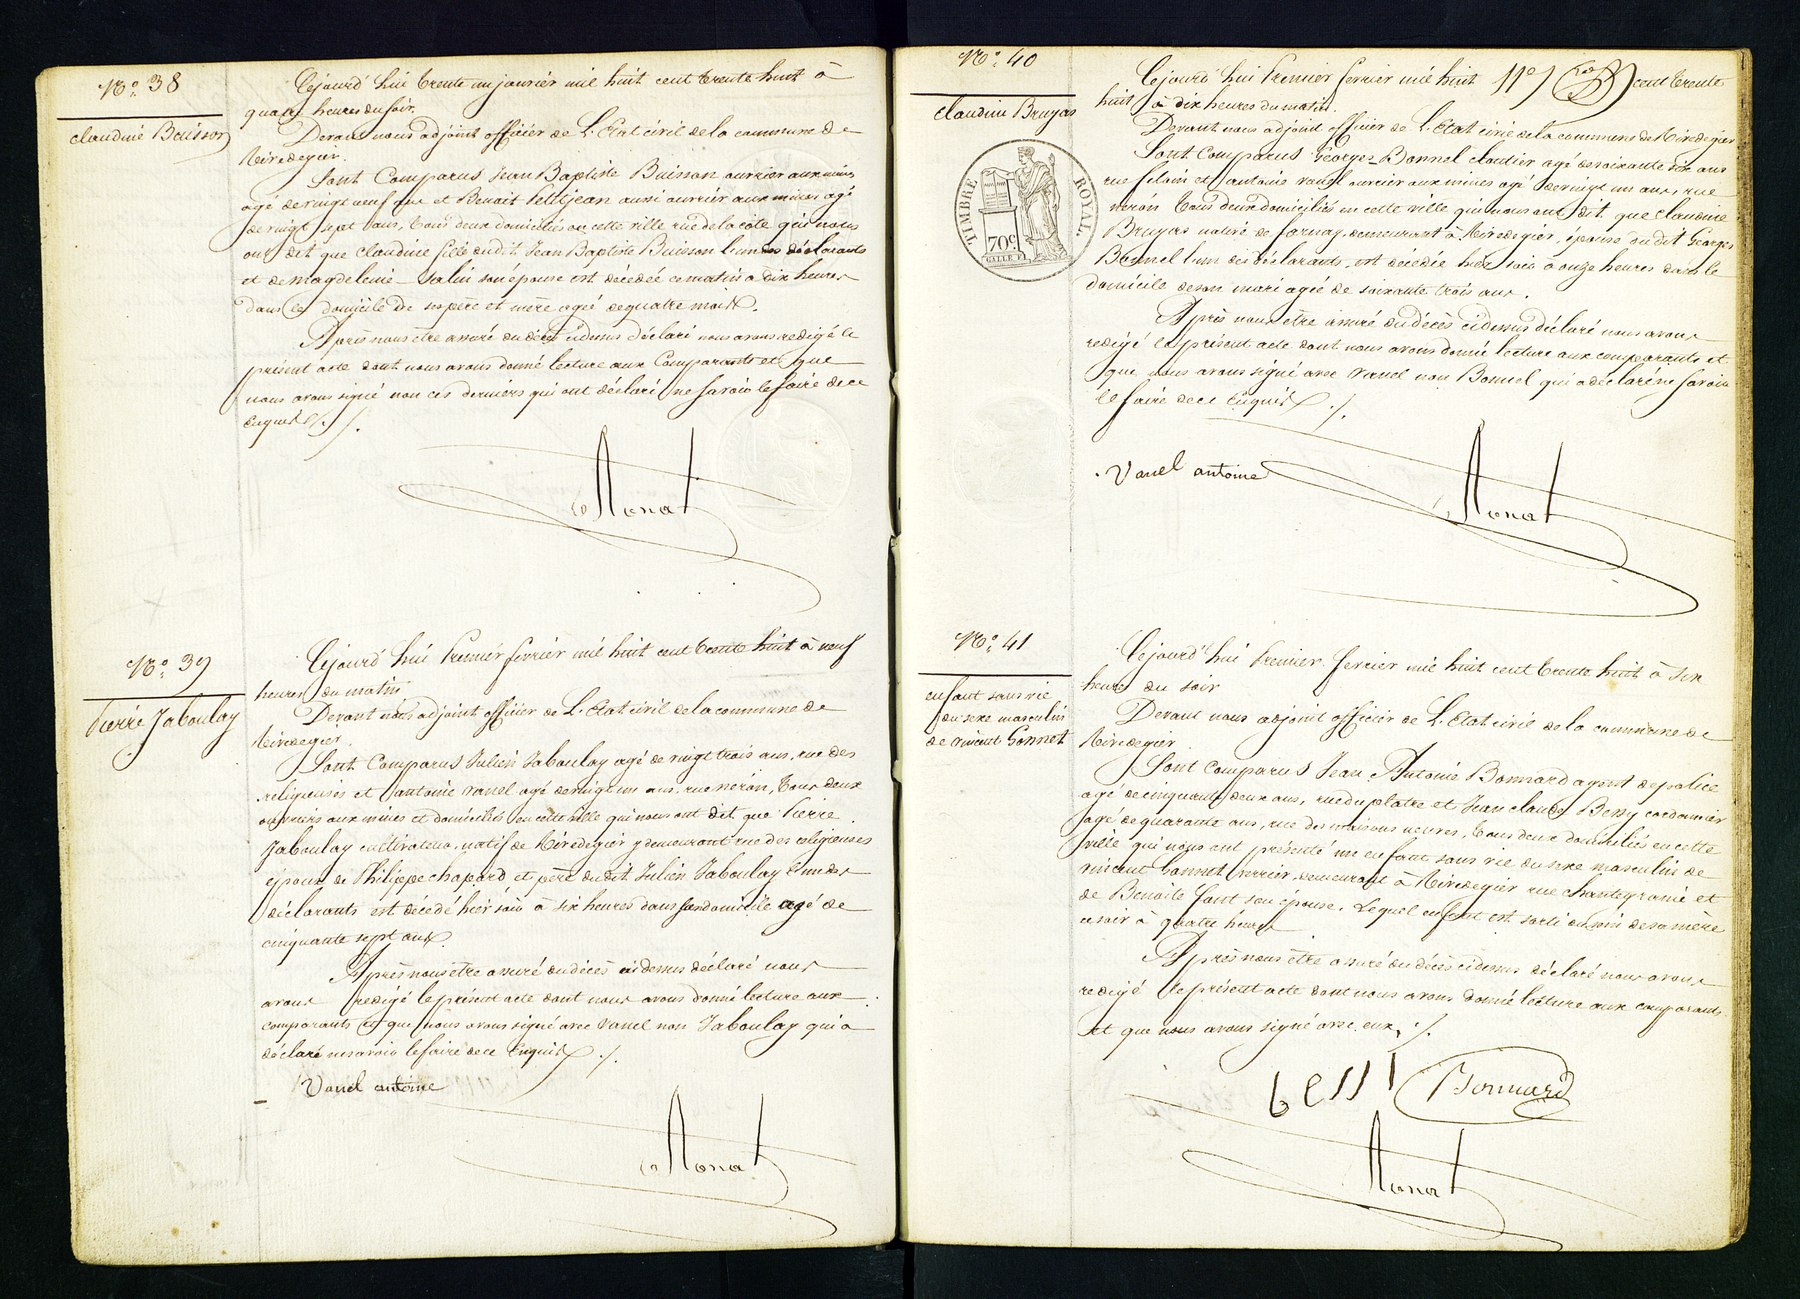 No. 38
Claudine Buisson
Cejourd'hui trente un janvier mil huit cent trente huit à
quatre heures du soir.
Devant nous adjoint officier de L'Etat civil de la commune de
Rivedegier.
Sont Comparus Jean Baptiste Buisson ouvrier aux mines
agé de vingt neuf ans et Benoit Petitjean aussi ouvrier aux mines agé
de vingt sept ans, tous deux domiciliés en cette ville rue de la côte qui nous
ont dit que Claudine fille dudit Jean Baptiste Buisson l'un des déclarants
et de Magdeleine Salin son épouse est décédée ce matin à dix heures
dans le domicile de ses père et mère agé de quatre mois.
Après nous être assuré du décès cidessus déclaré nous avons redigé le
présent acte dont nous avons donné lecture aux Comparants et que
nous avons signé non ces derniers qui ont déclaré ne savoir le faire de ce
Enquis ./.
No. 39
Pierre Jaboulay
Cejourd'hui Premier fevrier mil huit cent trente huit à neuf
heures du matin.
Devant nous adjoint officier de L'Etat civil de la commune de
Rivedegier.
Sont Comparus Julien Jaboulay agé de vingt trois ans, rue des
religieuses et antoine vanel agé de vingt un ans, rue néron, tous deux
ouvriers aux mines et domiciliés en cette ville qui nous ont dit que Pierre
Jaboulay cultivateur, natif de Rivedegier y demeurant rue des religieuses
époux de Philippe chapard et père dudit Julien Jaboulay l'un des
déclarants est décédé hier soir à six heures dans son domicile agé de
cinquante sept ans.
Après nous être assuré du décès cidessus déclaré nous
avons redigé le présent acte dont nous avons donné lecture aux
comparants et que nous avons signé avec vanel non Jaboulay qui a
déclaré ne savoir le faire de ce Enquis ./.
Vanel antoine
No. 40
Claudine Bruyas
TIMBRE ROYAL
70c
Cejourd'hui Premier fevrier mil huit cent trente
huit à dix heures du matin.
Devant nous adjoint officier de L'Etat civil de la commune de Rivedegier
Sont Comparus Georges Bonnel cloutier agé de soixante six ans
rue et antoine vanel ouvrier aux mines agé de vingt un ans, rue
néron tous deux domiciliés en cette ville qui nous ont dit que Claudine
Bruyas native de farnay, demeurant à Rivedegier, épouse du dit Georges
Bonnel l'un des déclarants, est décédée hier soir à onze heures dans le
domicile de son mari agée de soixante trois ans.
Après nous etre assuré du décès cidessus déclaré nous avons
redigé le présent acte dont nous avons donné lecture aux comparants et
que nous avons signé avec vanel non Bonnel qui a déclaré ne savoir
le faire de ce Enquis ./.
Vanel antoine
No. 41
enfant sans vie
du sexe masculin
de vincent Gonnet
Cejourd'hui Premier fevrier mil huit cent trente huit à six
heures du soir
Devant nous adjoint officier de L'Etat civil de la commune de
Rivedegier
Sont Comparus Jean Antoine Bonnard agent de police
agé de cinquante deux ans, rue du platre et Jean claude Bessy cordonnier
agé de quarante ans, rue des maisons neuves, tous deux domiciliés en cette
ville qui nous ont présenté un enfant sans vie du sexe masculin de
vincent Gonnet verrier, demeurant à Rivedegier rue chantegraine et
de Benoite font son épouse, Lequel enfant est sorti du sein de sa mère
ce soir à quatre heures
Après nous être assuré du décès cidessus déclaré nous avons
redigé le présent acte dont nous avons donné lecture aux comparants
et que nous avons signé avec eux, ./.
bessi Bonnard